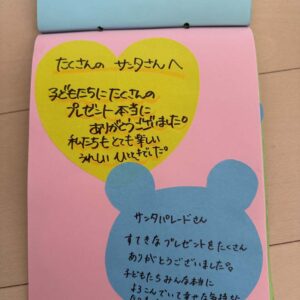 たくさんの サンタさんへ
子どもたちにたくさんの
プレゼント本当に
ありがとうございました。
私たちもとても楽しい
うれしいひとときでした。
サンタパレードさん
すてきなプレゼントをたくさん
ありがとうございました。
子どもたちみんな本当に
よろこんでいて幸せな気持ち